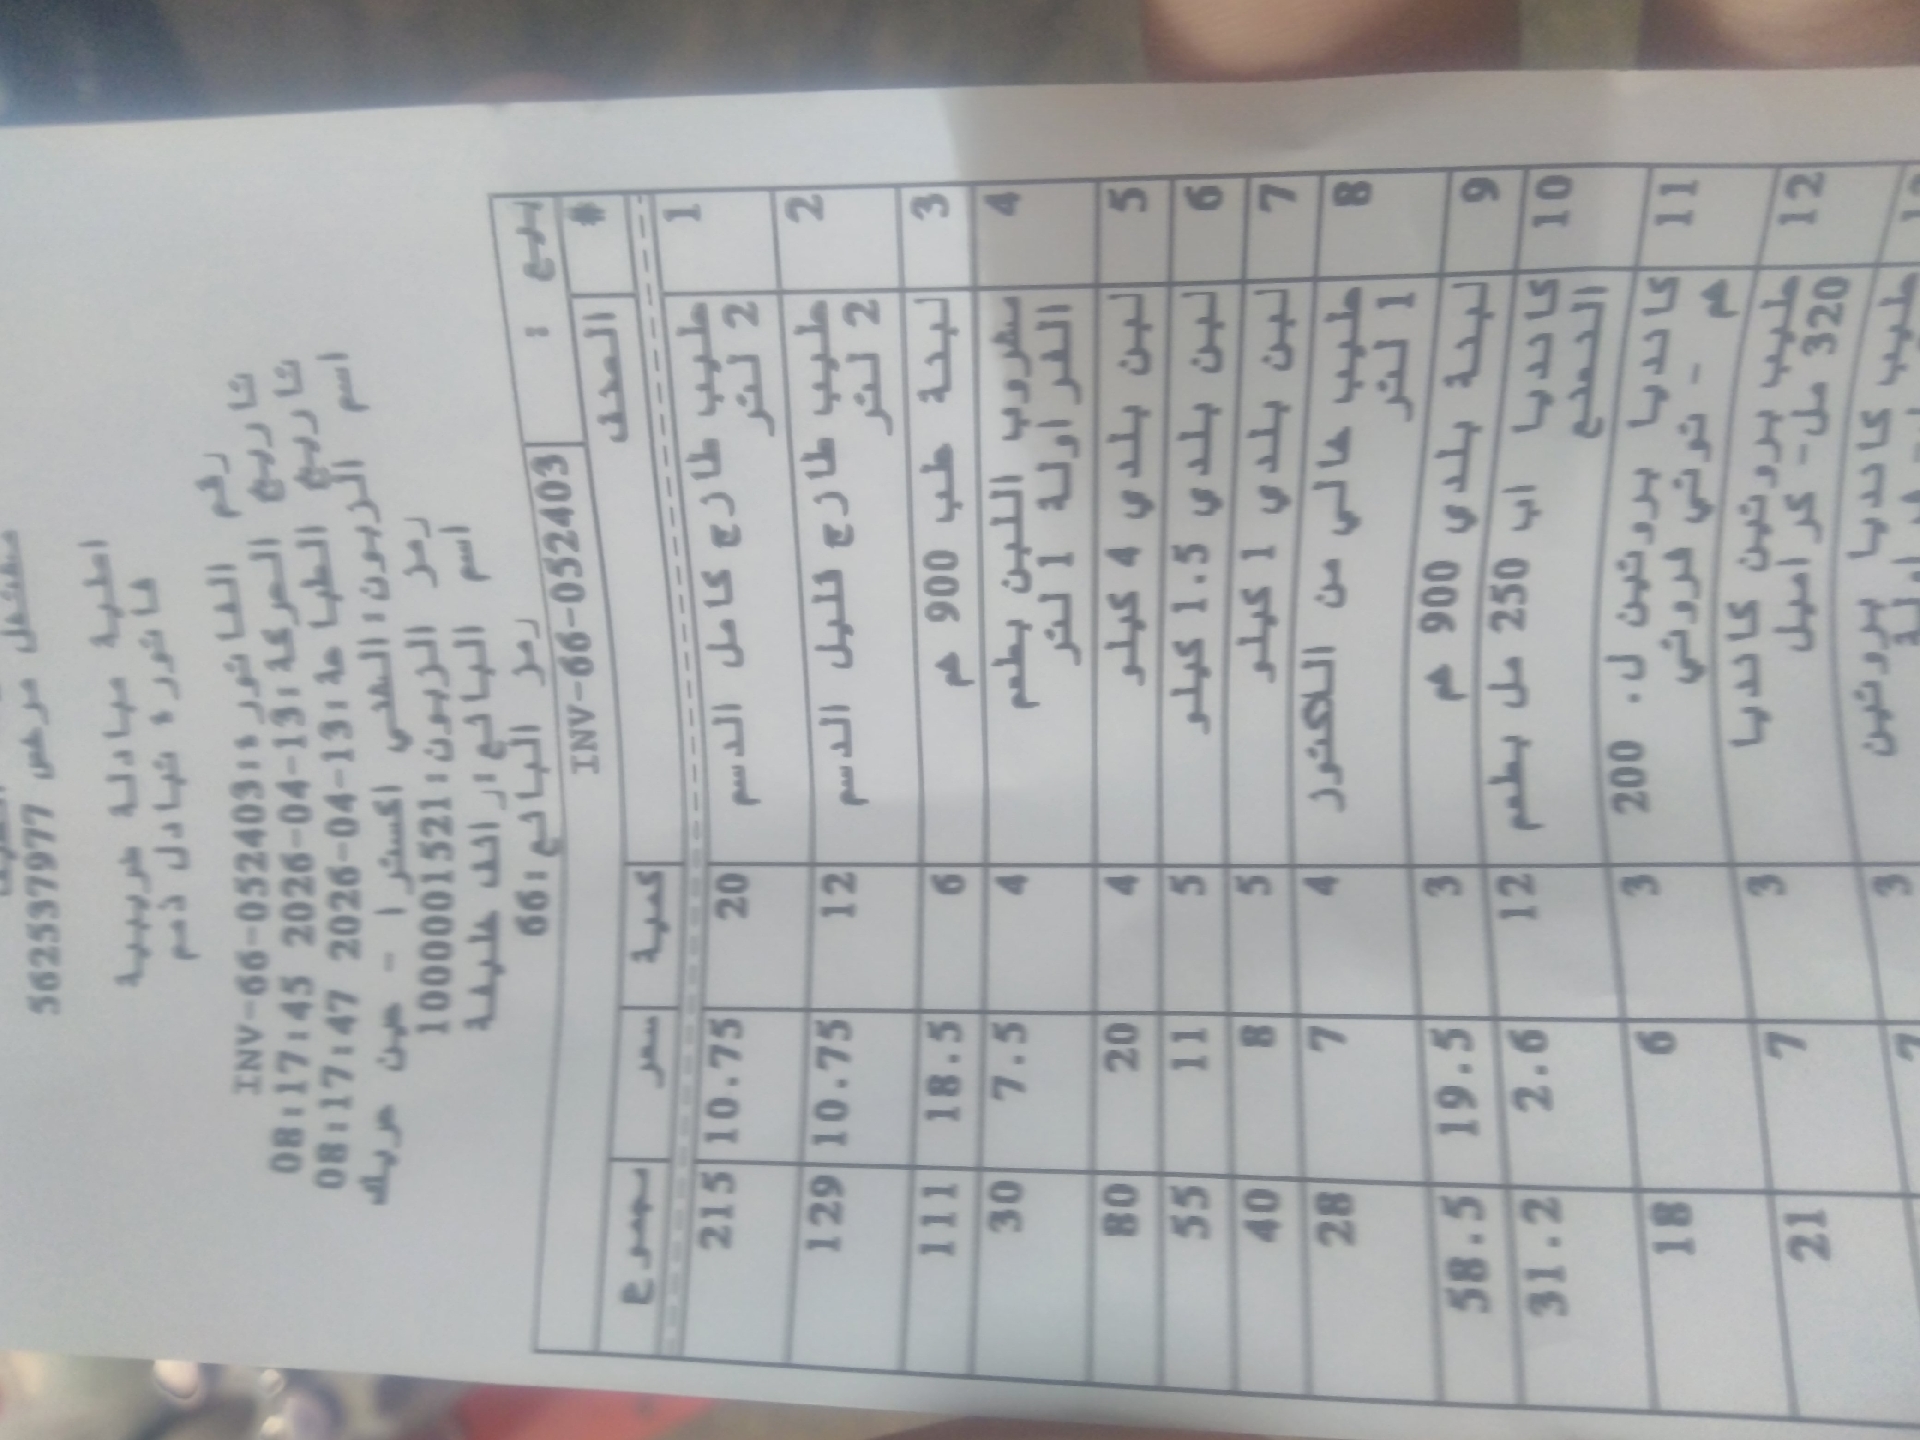 مشتغل مرخص 562537977
اصلية مبادلة ضريبية
فاتورة تبادل ذمم
رقم الفاتورة: INV-66-052403
تاريخ الحركة: 2026-04-13 08:17:45
تاريخ الطباعة: 2026-04-13 08:17:47
اسم الزبون: - اكسترا
رمز الزبون: 1000001521
اسم البائع: رائف خليفة
رمز البائع: 66
بيع : INV-66-052403
# الصنف كمية سعر مجموع
1 حليب طازج كامل الدسم 20 10.75 215
2 لتر
2 حليب طازج قليل الدسم 12 10.75 129
2 لتر
3 لبنة طب 900 غم 6 18.5 111
4 مشروب اللبن بطعم 4 7.5 30
الفراولة 1 لتر
5 لبن بلدي 4 كيلو 4 20 80
6 لبن بلدي 1.5 كيلو 5 11 55
7 لبن بلدي 1 كيلو 5 8 40
8 حليب خالي من اللاكتوز 4 7 28
1 لتر
9 لبنة بلدي 900 غم 3 19.5 58.5
10 كانديا اب 250 مل بطعم 12 2.6 31.2
11 كانديا بروتين ل. 200 3 6 18
غم - توتي فروتي
12 حليب بروتين كانديا 3 7 21
320 مل- كراميل
حليب كانديا بروتين 3 7